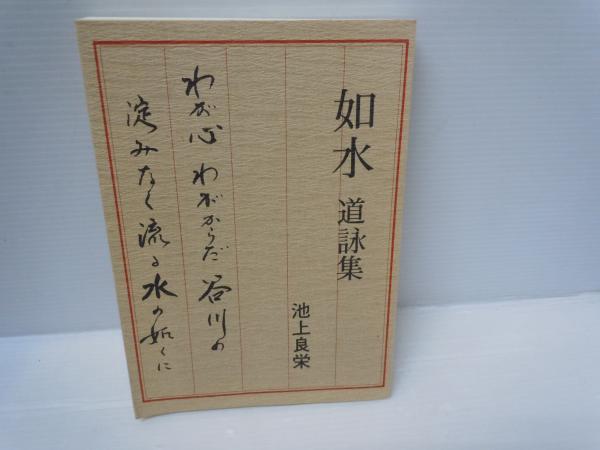 如水 道詠集
池上良栄
わが心 わがからだ 谷川の
淀みなく 流る 水の如くに